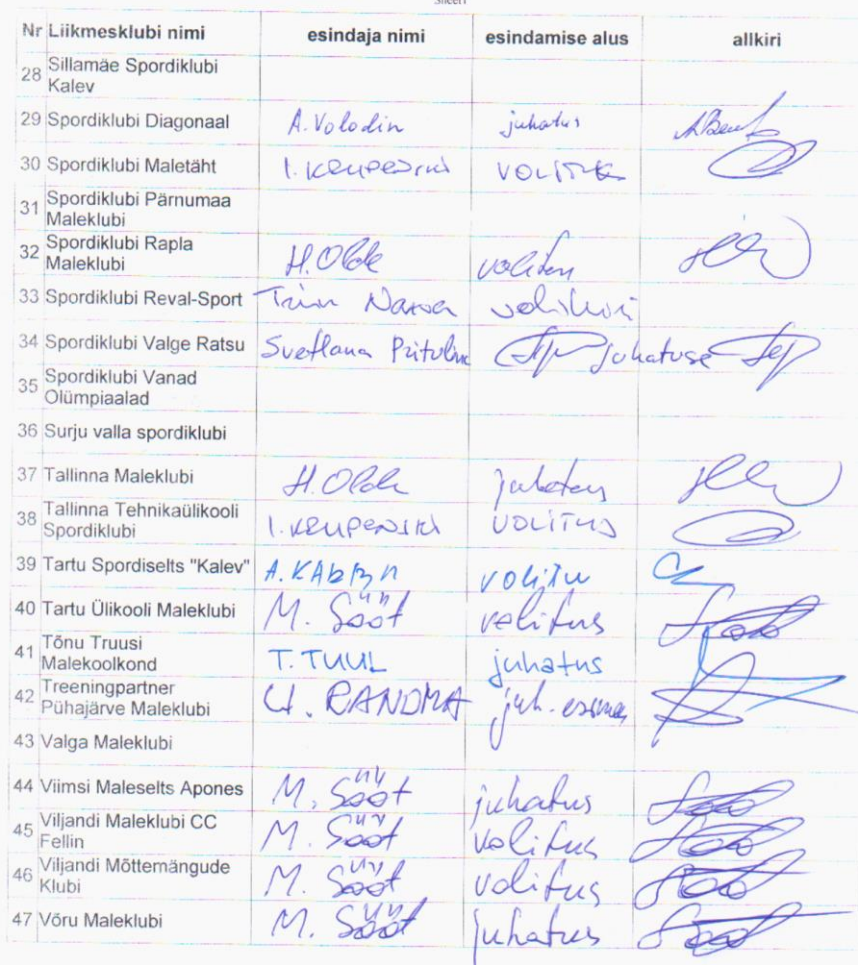 Sheet1
Nr Liikmesklubi nimi esindaja nimi esindamise alus allkiri
28 Sillamäe Spordiklubi
Kalev
29 Spordiklubi Diagonaal A. Volodin juhatus
30 Spordiklubi Maletäht
31 Spordiklubi Pärnumaa
Maleklubi
32 Spordiklubi Rapla
Maleklubi H. Olde
33 Spordiklubi Reval-Sport
34 Spordiklubi Valge Ratsu Svetlana juhatuse
35 Spordiklubi Vanad
Olümpiaalad
36 Surju valla spordiklubi
37 Tallinna Maleklubi H. Olde
38 Tallinna Tehnikaülikooli
Spordiklubi VOLITUS
39 Tartu Spordiselts "Kalev"
40 Tartu Ülikooli Maleklubi M. Sööt volitus
41 Tõnu Truusi
Malekoolkond T. TUUL juhatus
42 Treeningpartner
Pühajärve Maleklubi RANDMA
43 Valga Maleklubi
44 Viimsi Maleselts Apones M. Sööt juhatus
45 Viljandi Maleklubi CC
Fellin M. Sööt volitus
46 Viljandi Mõttemängude
Klubi M. Sööt volitus
47 Võru Maleklubi M. Sööt juhatus